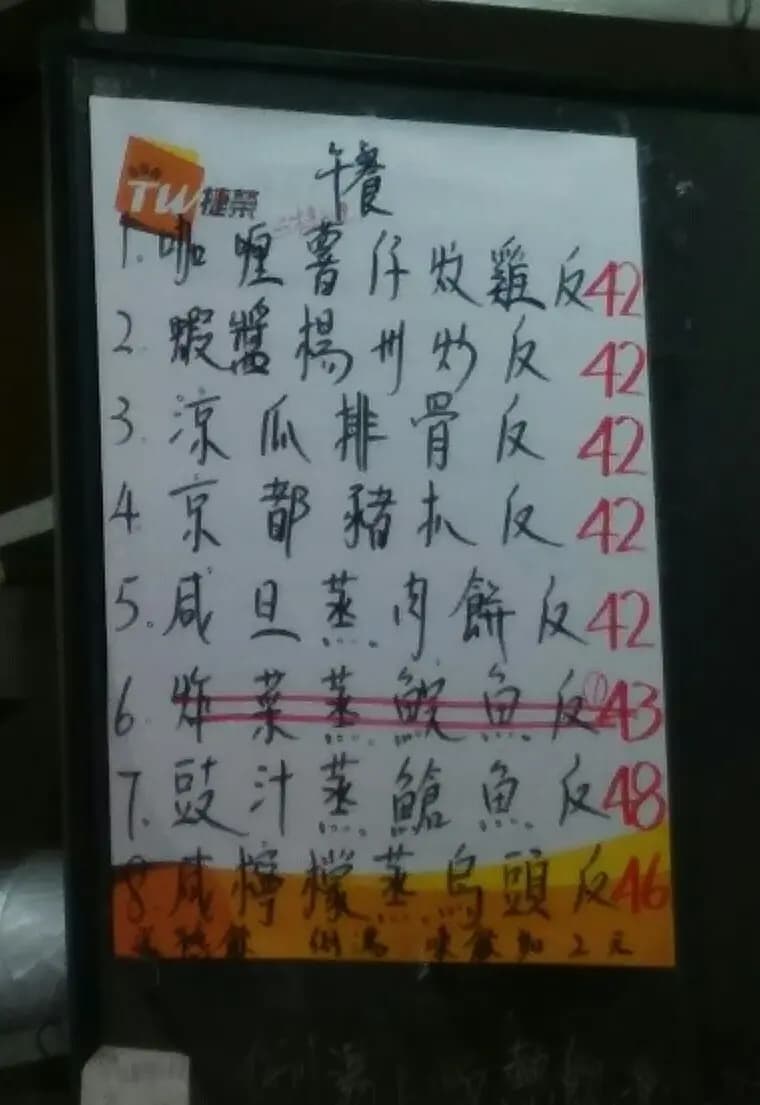 午餐
TW捷榮
1. 咖喱薯仔炆雞反 42
2. 蝦醬楊州炒反 42
3. 涼瓜排骨反 42
4. 京都豬扒反 42
5. 咸旦蒸肉餅反 42
6. 炸菜蒸鯇魚反 43
7. 豉汁蒸鯧魚反 48
8. 咸檸檬蒸烏頭反 46